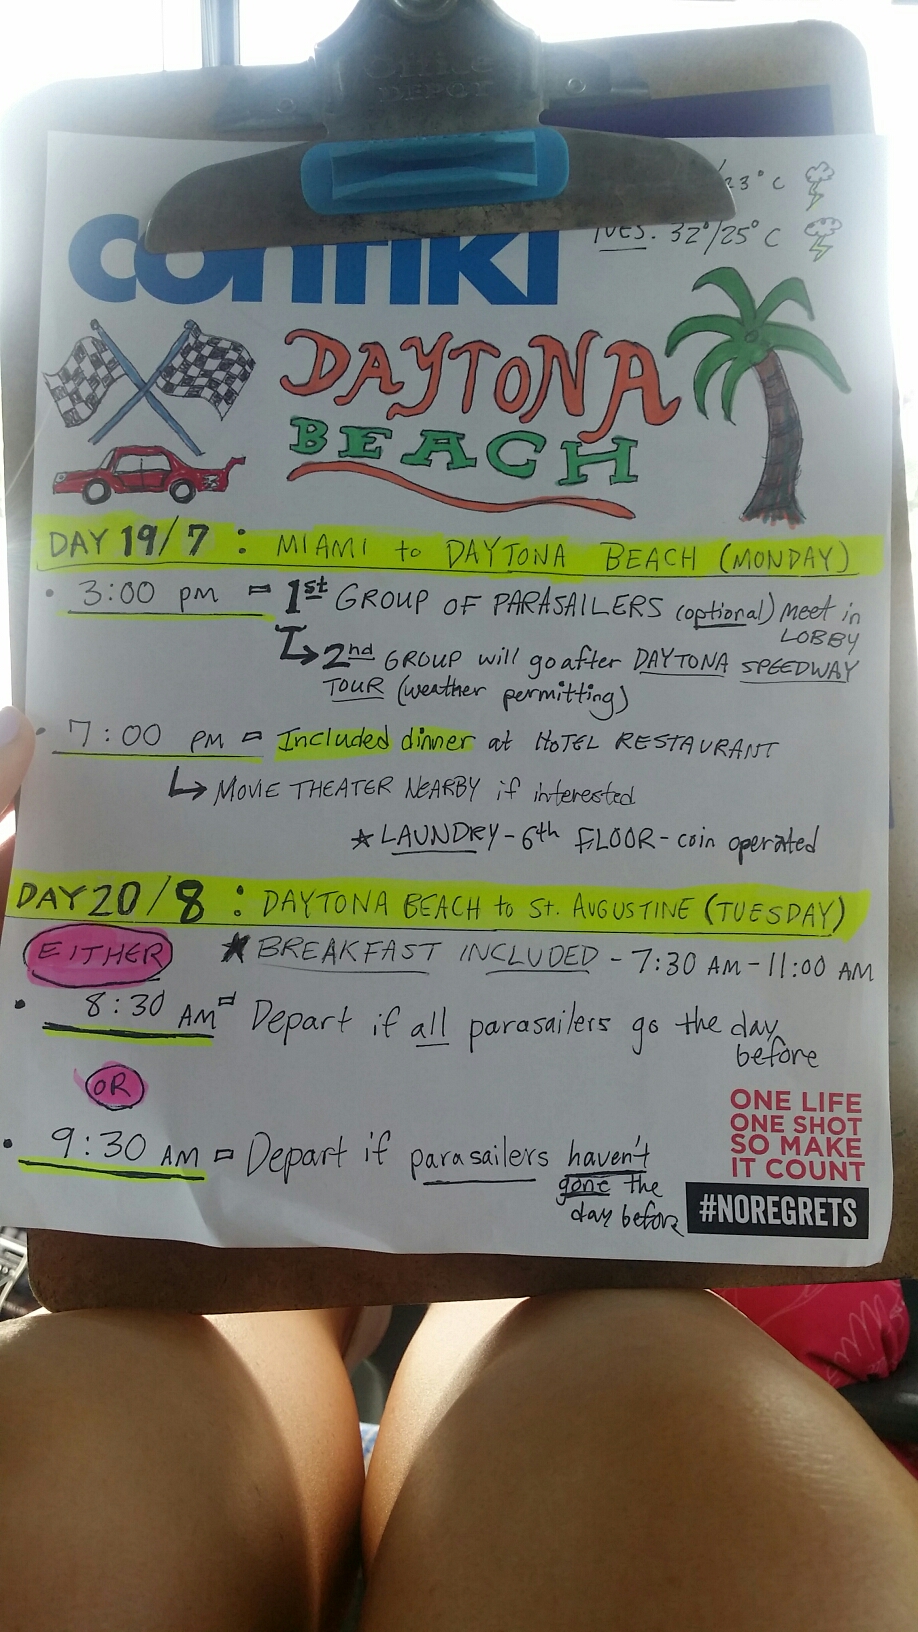 Office
DEPOT
contiki
23°C
TUES. 32°/25°C
DAYTONA
BEACH
DAY 19/7 : MIAMI to DAYTONA BEACH (MONDAY)
• 3:00 pm = 1st GROUP OF PARASAILERS (optional) Meet in
LOBBY
↳ 2nd GROUP will go after DAYTONA SPEEDWAY
TOUR (weather permitting)
• 7:00 pm = Included dinner at HOTEL RESTAURANT
↳ MOVIE THEATER NEARBY if interested
★ LAUNDRY - 6th FLOOR - coin operated
DAY 20/8 : DAYTONA BEACH to St. AUGUSTINE (TUESDAY)
EITHER ★ BREAKFAST INCLUDED - 7:30 AM - 11:00 AM
• 8:30 AM = Depart if all parasailers go the day
before
OR
• 9:30 AM = Depart if parasailers haven't
gone the
day before
ONE LIFE
ONE SHOT
SO MAKE
IT COUNT
#NOREGRETS